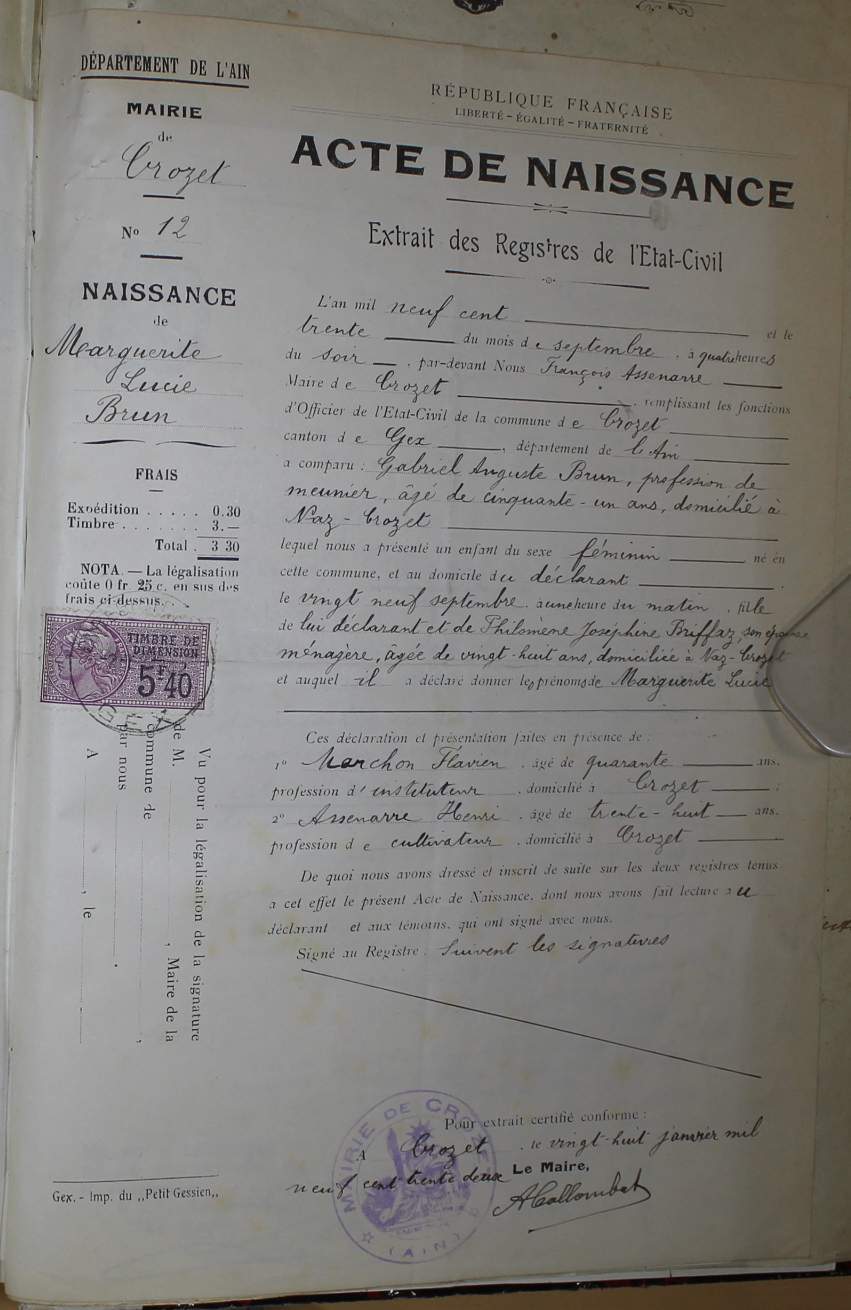 DÉPARTEMENT DE L'AIN
MAIRIE
de
Crozet
No 12
NAISSANCE
de
Marguerite
Lucie
Brun
FRAIS
Expédition . . . . . 0.30
Timbre . . . . . . . 3.—
Total . 3 30
NOTA. — La légalisation
coûte 0 fr. 25 c. en sus des
frais ci-dessus.
TIMBRE DE
DIMENSION
5F40
Vu pour la légalisation de la signature
de M. , Maire de la
commune de ,
par nous .
A , le
Gex. - Imp. du „Petit Gessien„
RÉPUBLIQUE FRANÇAISE
LIBERTÉ – ÉGALITÉ – FRATERNITÉ
ACTE DE NAISSANCE
Extrait des Registres de l'Etat-Civil
L'an mil neuf cent et le
trente du mois de septembre, à quatre heures
du soir, par-devant Nous François Assenarre
Maire de Crozet, remplissant les fonctions
d'Officier de l'Etat-Civil de la commune de Crozet
canton de Gex, département de l'Ain
a comparu : Gabriel Auguste Brun, profession de
meunier, âgé de cinquante-un ans, domicilié à
Naz-Crozet
lequel nous a présenté un enfant du sexe féminin né en
cette commune, et au domicile du déclarant
le vingt neuf septembre, à une heure du matin, fille
de lui déclarant et de Philomène Joséphine Briffaz, son épouse
ménagère, âgée de vingt-huit ans, domiciliée à Naz-Crozet
et auquel il a déclaré donner les prénoms de Marguerite Lucie
Ces déclaration et présentation faites en présence de :
1° Marchon Flavien, âgé de quarante ans,
profession d'instituteur, domicilié à Crozet ;
2° Assenarre Henri, âgé de trente-huit ans,
profession de cultivateur, domicilié à Crozet
De quoi nous avons dressé et inscrit de suite sur les deux registres tenus
a cet effet le présent Acte de Naissance, dont nous avons fait lecture au
déclarant et aux témoins, qui ont signé avec nous.
Signé au Registre : Suivent les signatures
Pour extrait certifié conforme :
A Crozet, le vingt-huit janvier mil
neuf cent trente deux Le Maire,
A Collombat
MAIRIE DE CROZET
(AIN)